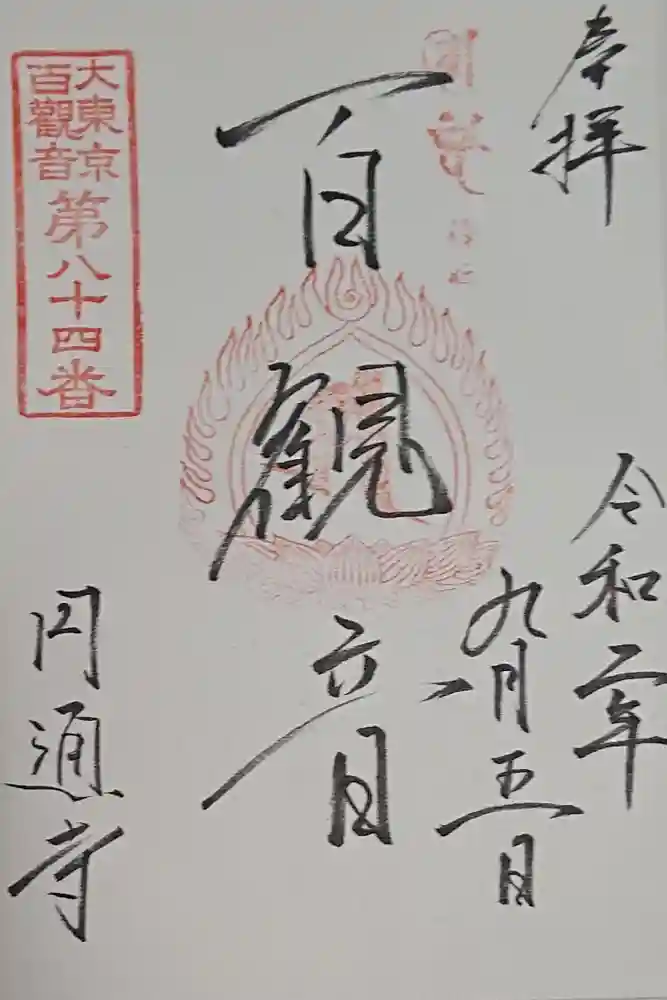 奉拝
令和二年
九月五日
百観音
大東京
百觀音
第八十四番
円通寺